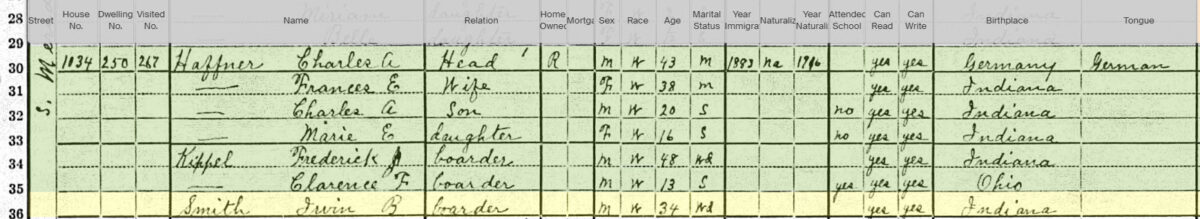 Street House No. Dwelling No. Visited No. Name Relation Home Owned Mortga Sex Race Age Marital Status Year Immigra Naturaliz Year Naturali Attended School Can Read Can Write Birthplace Tongue
28 Miriam daughter Indiana
29 Belle daughter Indiana
30 1034 250 267 Haffner Charles A Head R M W 43 M 1883 Na 1906 yes yes Germany German
31 — Frances E Wife F W 38 M yes yes Indiana
32 — Charles A Son M W 20 S no yes yes Indiana
33 — Marie E daughter F W 16 S no yes yes Indiana
34 Kippel Frederick boarder M W 48 Wd yes yes Indiana
35 — Clarence F boarder M W 13 S yes yes yes Ohio
36 Smith Irvin B boarder M W 34 Wd yes yes Indiana